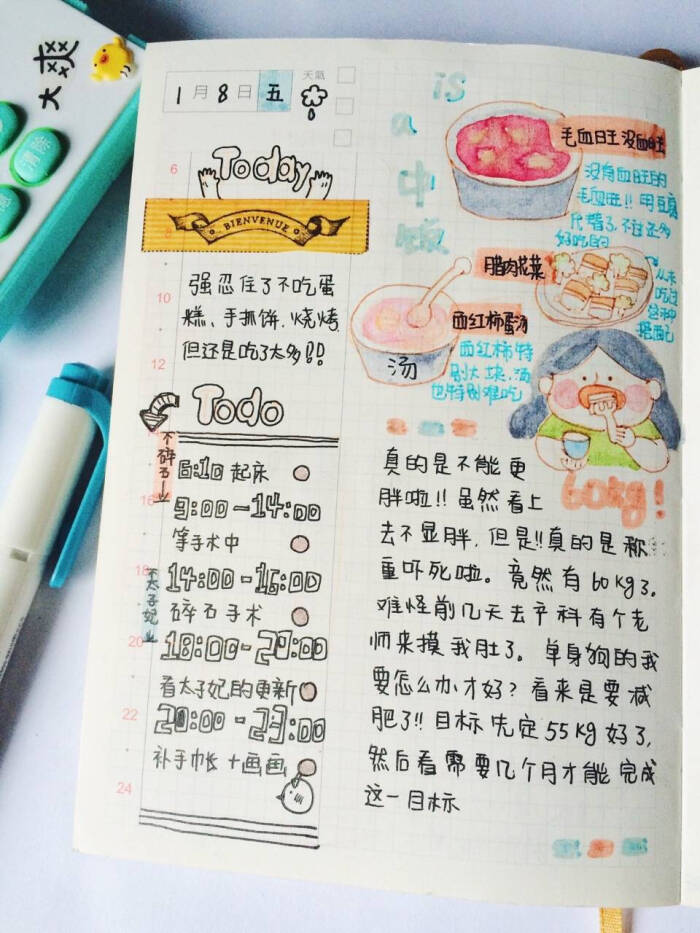 大爽
清除
1月8日 五 天氣
Today
BIENVENUE
强忍住了不吃蛋
糕、手抓饼、烧烤
但还是吃了太多!!
Todo
6:10 起床
9:00-14:00
等手术中
14:00-16:00
碎石手术
18:00-20:00
看太子妃的更新
20:00-23:00
补手帐+画画
碎石
太子妃
6
10
12
16
18
20
22
24
is
a
中
饭
毛血旺 没血旺
没有血旺的
毛血旺!! 用豆腐
代替了,不过还多
好吃的
腊肉花菜
从未
吃过
这种
搭配
西红柿蛋汤
汤
西红柿特
别大块,汤
也特别难吃
60kg!
真的是不能更
胖啦!! 虽然看上
去不显胖,但是!!真的是称
重吓死啦。竟然有60kg了。
难怪前几天去产科有个老
师来摸我肚了。单身狗的我
要怎么办才好?看来是要减
肥了!! 目标先定55kg好了,
然后看需要几个月才能完成
这一目标